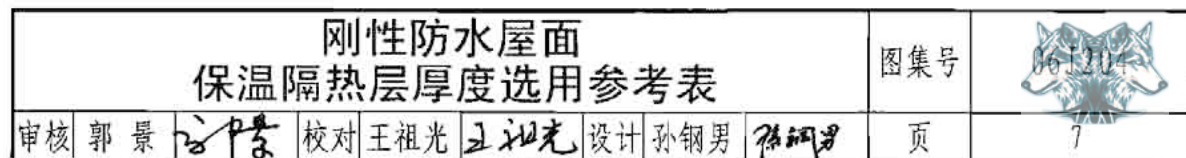 刚性防水屋面
保温隔热层厚度选用参考表
图集号 06J204
审核 郭景 校对 王祖光 王祖光 设计 孙钢男 孙钢男 页 7